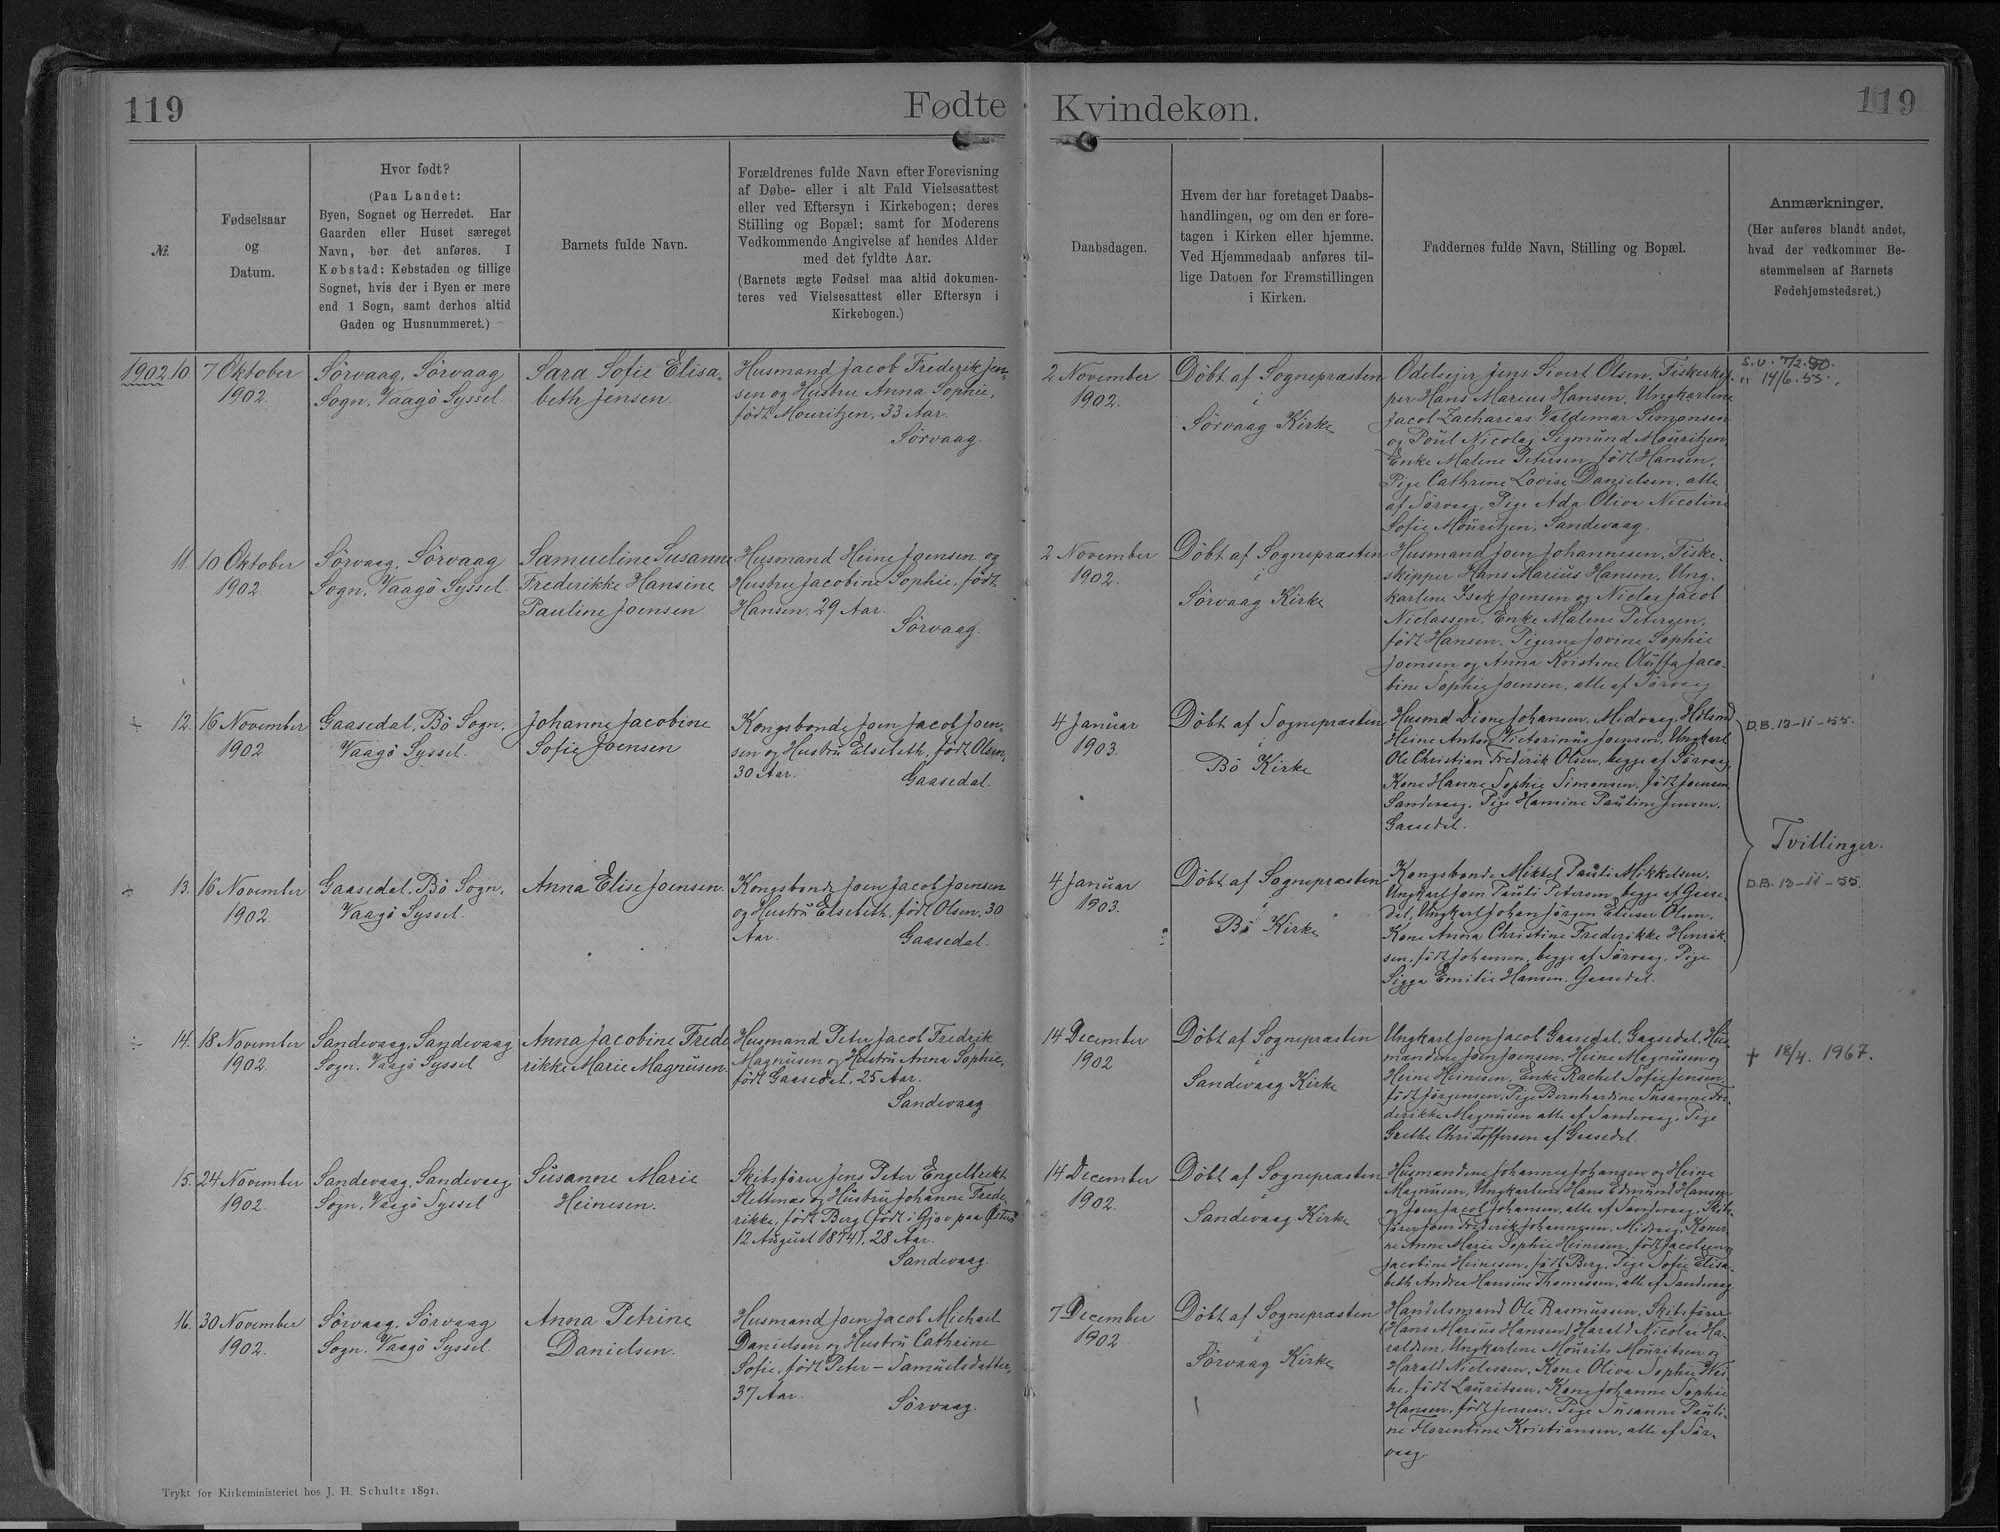 119
Fødte
Kvindekøn.
119
№
Fødselsaar
og
Datum.
Hvor født?
(Paa Landet:
Byen, Sognet og Herredet. Har
Gaarden eller Huset særeget
Navn, bør det anføres. I
Købstad: Købstaden og tillige
Sognet, hvis der i Byen er mere
end 1 Sogn, samt derhos altid
Gaden og Husnummeret.)
Barnets fulde Navn.
Forældrenes fulde Navn efter Forevisning
af Døbe- eller i alt Fald Vielsesattest
eller ved Eftersyn i Kirkebogen; deres
Stilling og Bopæl; samt for Moderens
Vedkommende Angivelse af hendes Alder
med det fyldte Aar.
(Barnets ægte Fødsel maa altid dokumen-
teres ved Vielsesattest eller Eftersyn i
Kirkebogen.)
Daabsdagen.
Hvem der har foretaget Daabs-
handlingen, og om den er fore-
tagen i Kirken eller hjemme.
Ved Hjemmedaab anføres til-
lige Datoen for Fremstillingen
i Kirken.
Faddernes fulde Navn, Stilling og Bopæl.
Anmærkninger.
(Her anføres blandt andet,
hvad der vedkommer Be-
stemmelsen af Barnets
Fødehjemstedsret.)
1902. 10.
7 Oktober
1902.
Sørvaag, Sørvaag
Sogn, Vaagø Syssel.
Sara Sofie Elisa-
beth Jensen.
Husmand Jacob Frederik Jen-
sen og Hustru Anna Sophie,
født Mouritzen, 33 Aar.
Sørvaag.
2 November
1902.
Døbt af Sognepræsten
i
Sørvaag Kirke
Odelsejer Jens Sivert Olsen, Fiskerskip-
per Hans Marius Hansen, Ungkarlene
Jacob Zacharias Valdemar Simonsen
og Poul Nicolaj Sigmund Mouritzen,
Enke Malene Petersen, født Hansen,
Pige Cathrine Lovise Danielsen, alle
af Sørvaag, Pige Ada Oliva Nicoline
Sofie Mouritzen, Sandevaag.
S.U. 7/2.50.
" 14/6.55.
11.
10 Oktober
1902.
Sørvaag, Sørvaag
Sogn, Vaagø Syssel.
Samueline Susanne
Frederikke Hansine
Pauline Joensen.
Husmand Heine Joensen og
Hustru Jacobine Sophie, født
Hansen, 29 Aar.
Sørvaag.
2 November
1902.
Døbt af Sognepræsten
i
Sørvaag Kirke
Husmand Joen Johannesen, Fiske-
skipper Hans Marius Hansen, Ung-
karlene Isak Joensen og Niclas Jacob
Niclassen, Enke Malene Petersen,
født Hansen, Pigerne Jovine Sophie
Joensen og Anna Kristine Oluffa Jaco-
bine Sophie Joensen, alle af Sørvaag
12.
16 November
1902
Gaasedal, Bø Sogn,
Vaagø Syssel.
Johanne Jacobine
Sofie Joensen
Kongsbonde Joen Jacob Joen-
sen og Hustru Elsebeth, født Olsen,
30 Aar.
Gaasedal.
4 Januar
1903.
Døbt af Sognepræsten
i
Bø Kirke
Husmd Dione Johansen, Midvaag,
Heine Anton Victorinus Joensen, Ungkarl
Ole Christian Frederik Olsen, begge af Sørvaag,
Kone Hanne Sophie Simonsen, født Joensen,
Sandevaag, Pige Hansine Pauline Jensen,
Gaasedal.
D.B. 13-11-55.
Tvillinger.
13.
16 November
1902.
Gaasedal, Bø Sogn,
Vaagø Syssel.
Anna Elise Joensen.
Kongsbonde Joen Jacob Joensen
og Hustru Elsebeth, født Olsen, 30
Aar.
Gaasedal.
4 Januar
1903.
Døbt af Sognepræsten
i
Bø Kirke
Kongsbonde Mikkel Pauli Mikkelsen,
Ungkarl Joen Pauli Petersen, begge af Gaase-
dal, Ungkarl Johan Jørgen Elieser Olsen,
Kone Anna Christine Frederikke Henrik-
sen, født Johansen, begge af Sørvaag, Pige
Sigga Emilie Hansen, Gaasedal.
D.B. 13-11-55.
14.
18 November
1902.
Sandevaag, Sandevaag
Sogn, Vaagø Syssel
Anna Jacobine Frede
rikke Marie Magnusen.
Husmand Peter Jacob Frederik
Magnusen og Hustru Anna Sophie,
født Gaasedal, 25 Aar.
Sandevaag
14 December
1902
Døbt af Sognepræsten
i
Sandevaag Kirke
Ungkarl Joen Jacob Gaasedal, Gaasedal, Hus-
mændene Joen Joensen, Heine Magnusen og
Heine Heinesen, Enke Rachel Sofie Jensen,
født Jørgensen, Pige Bernhardine Susanne Fre-
derikke Magnusen alle af Sandevaag, Pige
Grethe Christoffersen af Gaasedal.
+ 18/4. 1967.
15.
24 November
1902.
Sandevaag, Sandevaag
Sogn, Vaagø Syssel
Susanne Marie
Heinesen.
Skibsfører Jens Peter Engelbrekt
Slettenæs og Hustru Johanne Frede-
rikke, født Berg (født i Gjov paa Østerø
12 August 1874), 28 Aar.
Sandevaag
14 December
1902.
Døbt af Sognepræsten
i
Sandevaag Kirke
Husmændene Johannes Johansen og Heine
Magnusen, Ungkarlene Hans Edmund Hansen
og Joen Jacob Johansen, alle af Sandevaag, Skibs-
fører Joen Frederik Johannesen, Midvaag, Koner-
ne Anne Marie Sophie Heinesen, født Jacobsen og
Jacobine Heinesen, født Berg, Pige Sofie Elisa-
beth Andrea Hansine Thomassen, alle af Sandevaag
16.
30 November
1902.
Sørvaag, Sørvaag
Sogn, Vaagø Syssel.
Anna Petrine
Danielsen.
Husmand Joen Jacob Michael
Danielsen og Hustru Cathrine
Sofie, født Peter-Samuelsdatter,
37 Aar.
Sørvaag.
7 December
1902
Døbt af Sognepræsten
i
Sørvaag Kirke
Handelsmand Ole Rasmussen, Skibsfører
(Hans Marius Hansen) Harald Nicolai Ha-
raldsen, Ungkarlene Mourits Mouritsen og
Harald Niclassen, Kone Oliva Sophie Wei-
he, født Lauritsen, Kone Johanne Sophie
Hansen, født Jensen, Pige Susanne Pauli-
ne Florentine Kristiansen, alle af Sør-
vaag.
Trykt for Kirkeministeriet hos J. H. Schultz 1891.